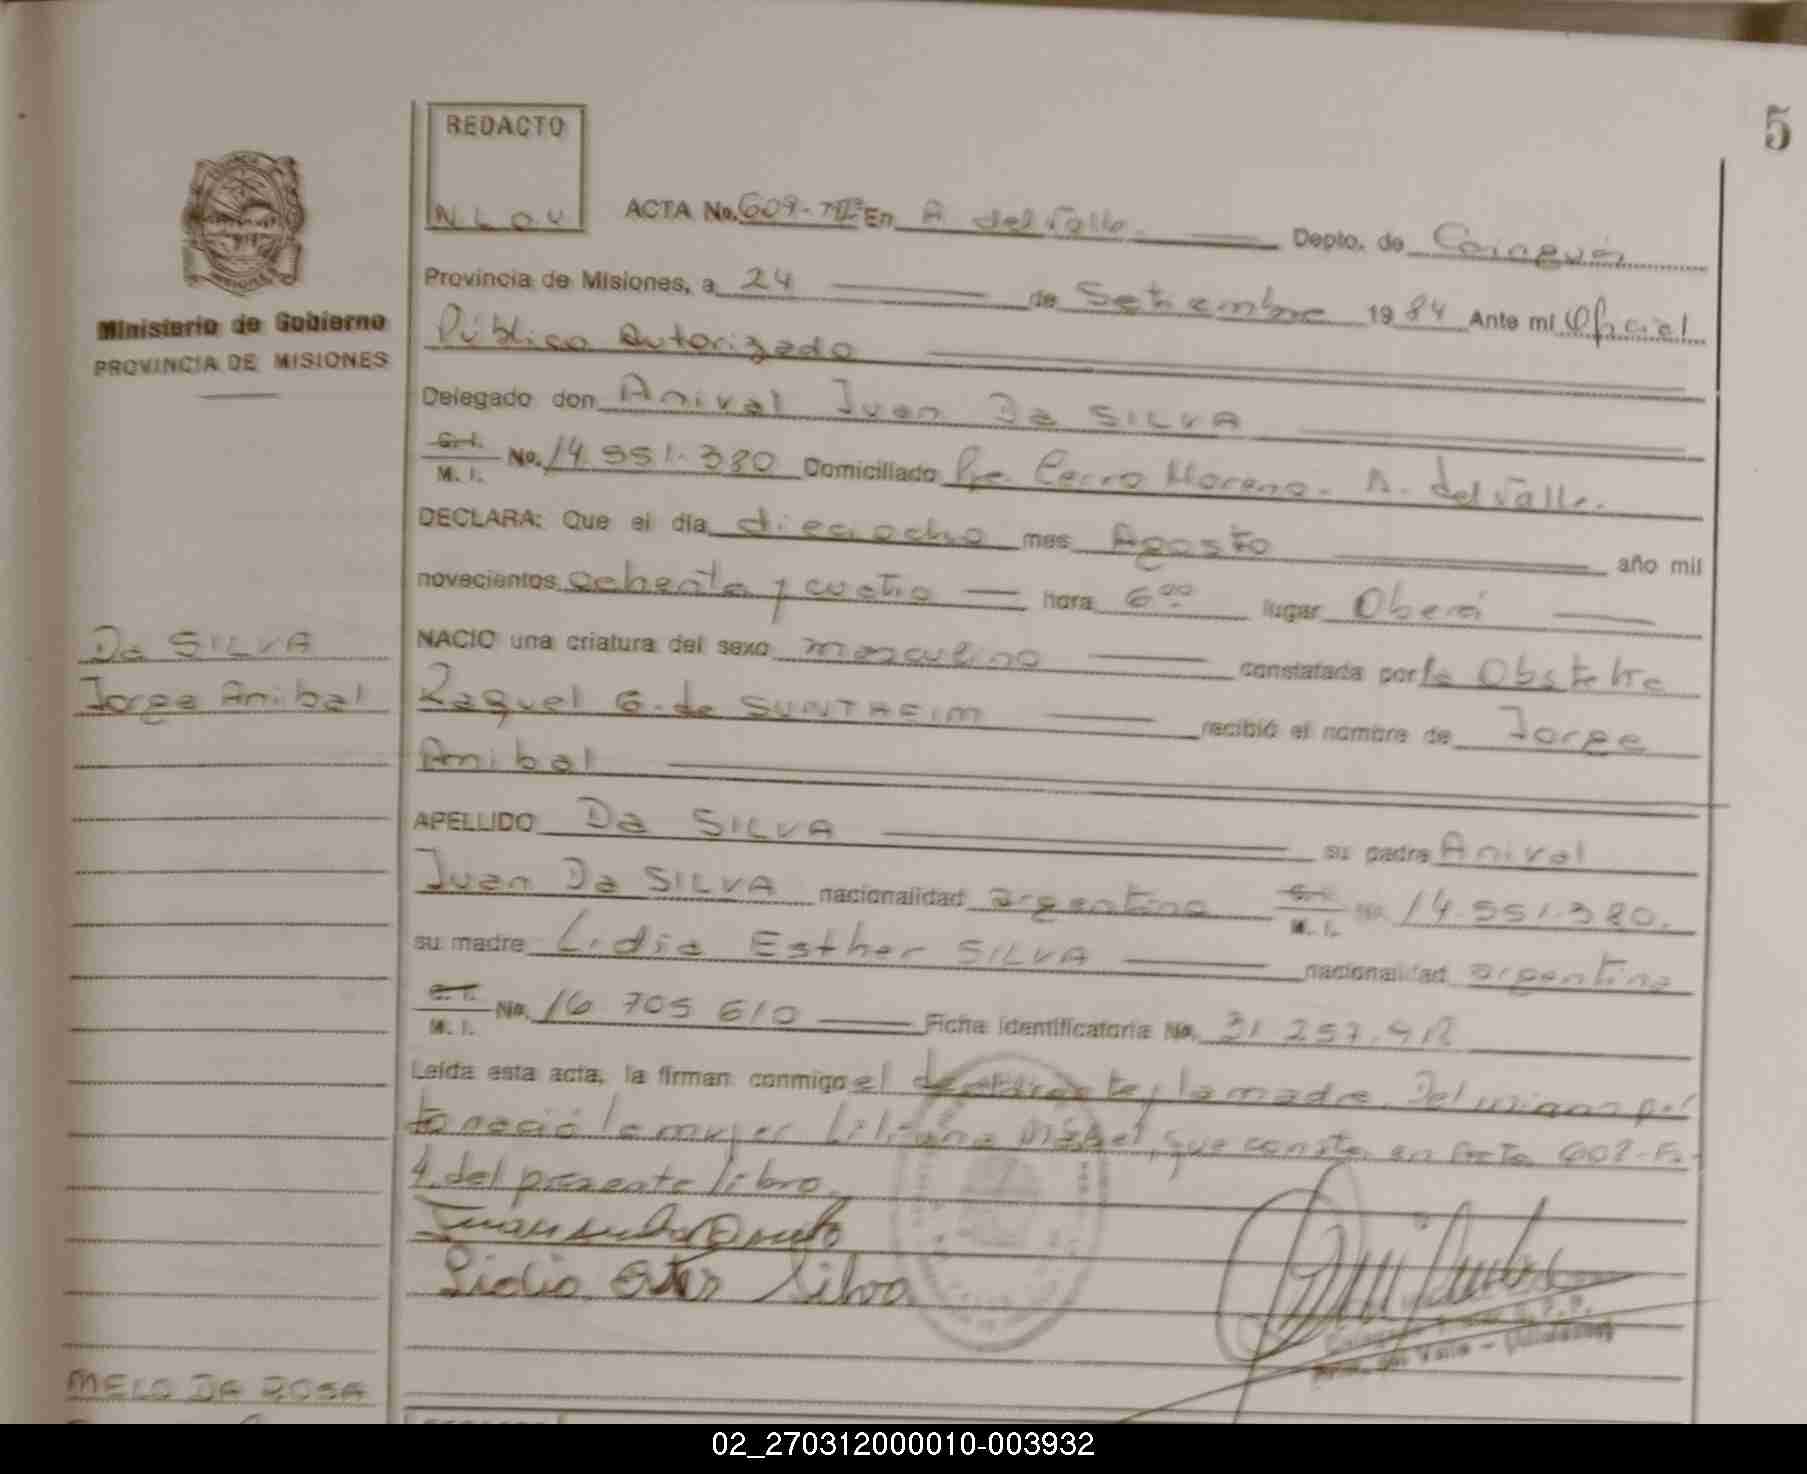 5
REDACTO
N L O V
ACTA No. 609- En A. del Valle. Depto. de Cainguás
Provincia de Misiones, a 24 de Setiembre 1984 Ante mi Oficial
Ministerio de Gobierno
PROVINCIA DE MISIONES
Público Autorizado
Delegado don Anival Juan Da SILVA
C. I.
M. I. No. 14.551.380 Domiciliado Pje. Cerro Moreno. A. del Valle.
DECLARA: Que el día dieciocho mes Agosto año mil
novecientos ochenta y cuatro hora 6 00 lugar Oberá
Da SILVA
Jorge Anibal
NACIO una criatura del sexo masculino constatada por la Obstetra
Raquel G. de SUNTHEIM recibió el nombre de Jorge
Anibal
APELLIDO Da SILVA su padre Anival
Juan Da SILVA nacionalidad argentino C. I.
M. I. No. 14.551.380.
su madre Lidia Esther SILVA nacionalidad argentina
C. I.
M. I. No. 16 705 610 Ficha identificatoria No. 31 257.412
Leída esta acta, la firman conmigo el declarante y la madre. Del mismo par
to nació la mujer Liliana Mabel, que consta en Acta 608-Fº
4. del presente libro.
Lidia Ester Silva
MELO DA ROSA
02_270312000010-003932